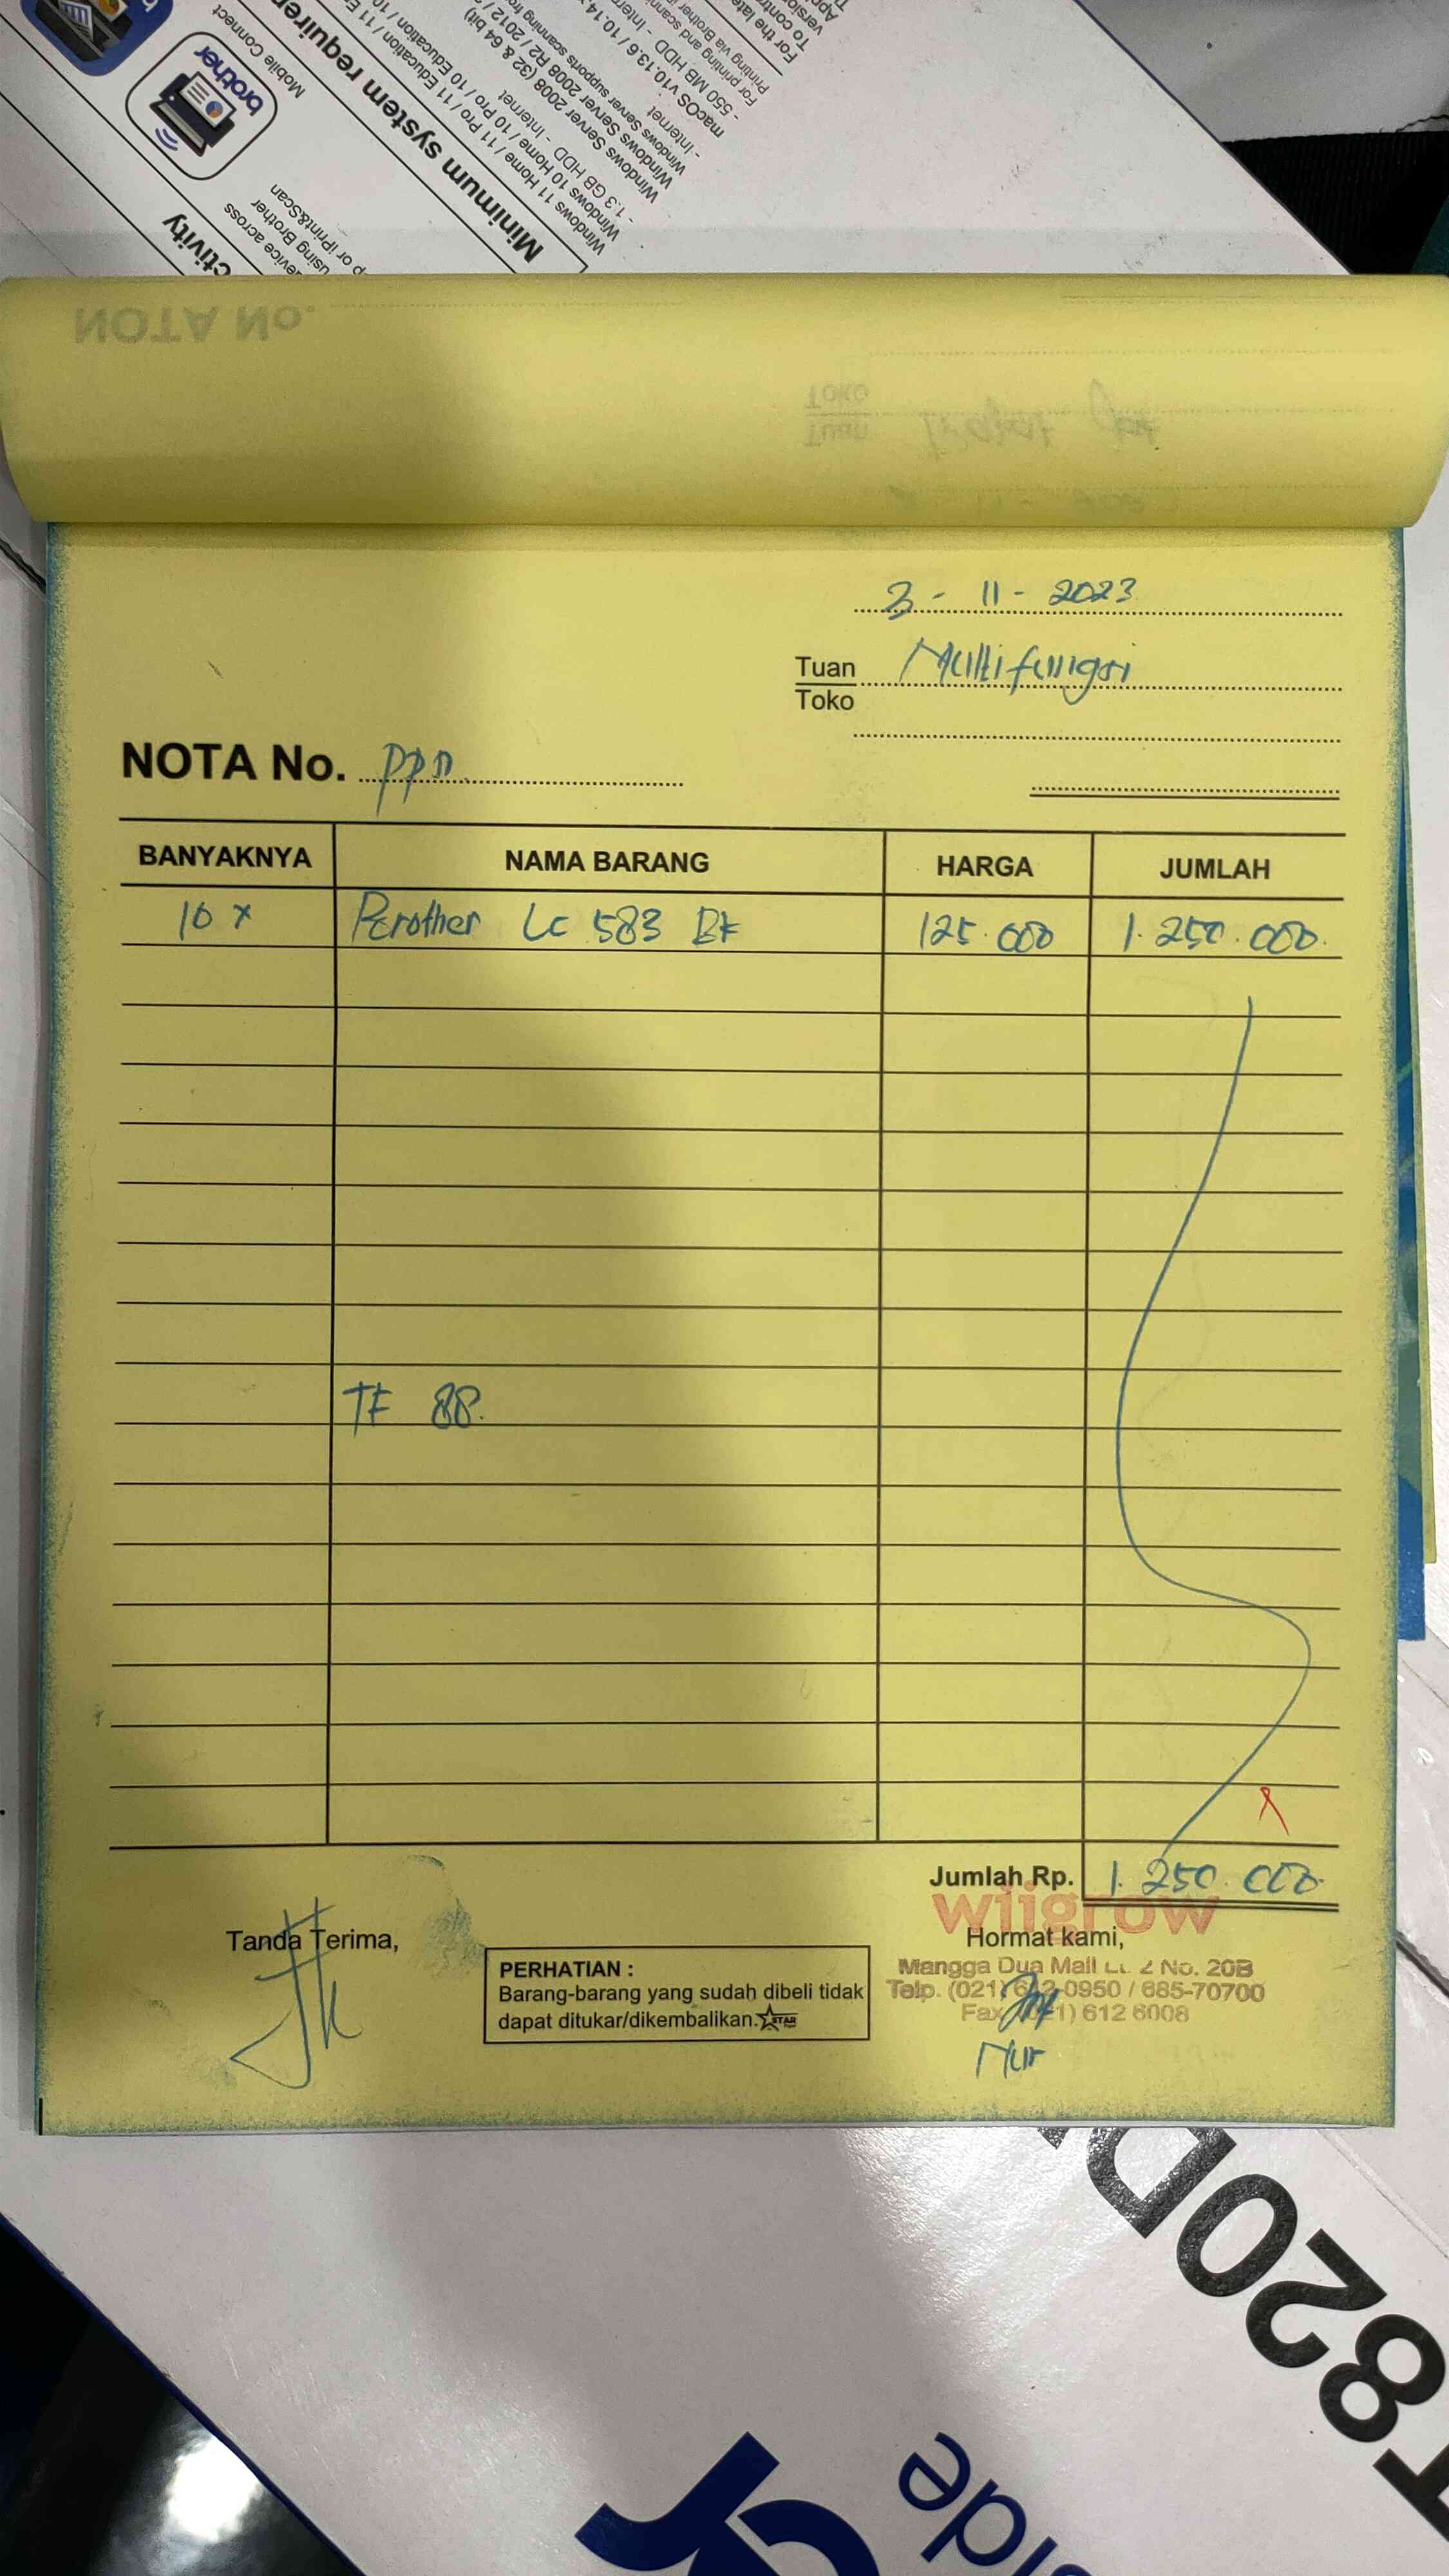 brother
Mobile Connect
Minimum system require
Windows 11 Home / 11 Pro / 11 Education / 11 E
Windows 10 Home / 10 Pro / 10 Education / 10
- 1.3 GB HDD - Internet
Windows Server 2008 (32 & 64 bit)
Windows Server 2008 R2 / 2012 /
Windows Server supports
- Internet
macOS v10.13.6 / 10.14
- 550 MB HDD - Intern
For printing and scanni
Printing via Brother
For the late
To contr
versio
ctivity
evice across
using Brother
p or iPrint&Scan
NOTA No.
Toko
Tuan
3 - 11 - 2023
Tuan Multifungsi
Toko
NOTA No. PPN
BANYAKNYA NAMA BARANG HARGA JUMLAH
10 x Brother LC 583 BK 125.000 1.250.000.
TF 88.
Jumlah Rp. 1.250.000.
wiigrow
Tanda Terima, Hormat kami,
PERHATIAN :
Barang-barang yang sudah dibeli tidak
dapat ditukar/dikembalikan. STAR
Mangga Dua Mall Lt. 2 No. 20B
Telp. (021) 612-0950 / 685-70700
Fax (021) 612 6008
Nur
T820D
ide